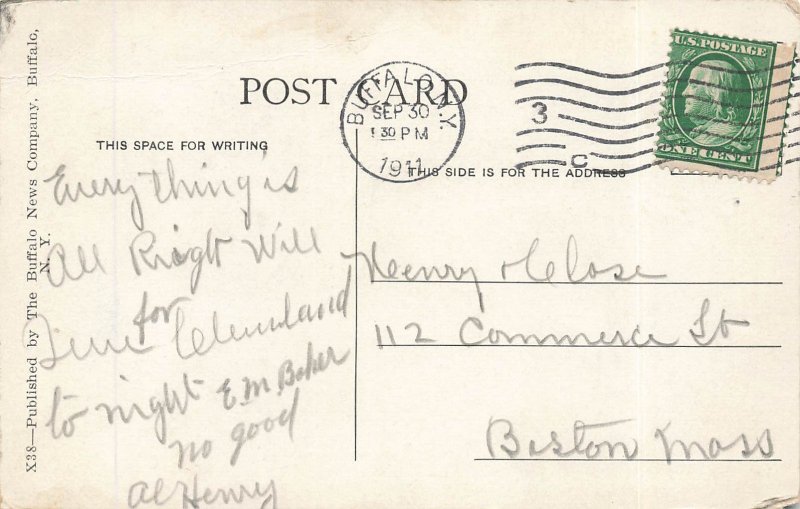 X38—Published by The Buffalo News Company, Buffalo,
N. Y.
POST CARD
THIS SPACE FOR WRITING
THIS SIDE IS FOR THE ADDRESS
BUFFALO, N.Y.
SEP 30
30 PM
1911
3
C
U.S. POSTAGE
ONE CENT
Every thing is
All Right Will
for
Cleveland
to night E. M. Baker
no good
Al Henry
Henry & Close
112 Commerce St
Boston Mass